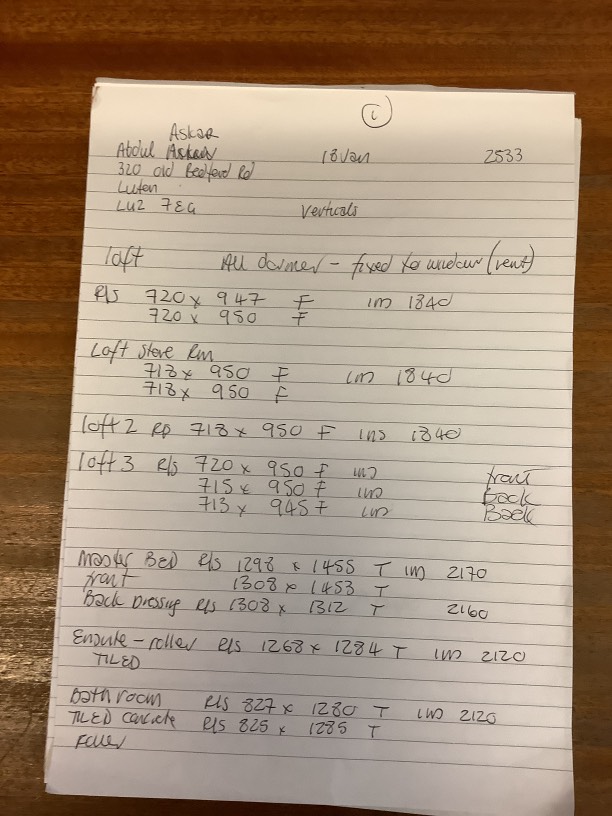 i
Askar
Abdul Askar 18 Jan 2533
320 old Bedford Rd
Luton
LU2 7EG Verticals
loft All dormer - fixed to window (vent)
R/s 720 x 947 F im 1840
720 x 950 F
Loft Store Rm
718 x 950 F im 1840
718 x 950 F
loft 2 Rp 718 x 950 F ins 1840
loft 3 R/s 720 x 950 F ins front
715 x 950 F im Back
713 x 945 F im Back
Master Bed R/s 1298 x 1455 T im 2170
front 1308 x 1453 T
Back Dressing R/s 1308 x 1312 T 2160
Ensuite - roller R/s 1268 x 1284 T im 2120
TILED
Bathroom R/s 827 x 1280 T im 2120
TILED concrete R/s 825 x 1285 T
roller